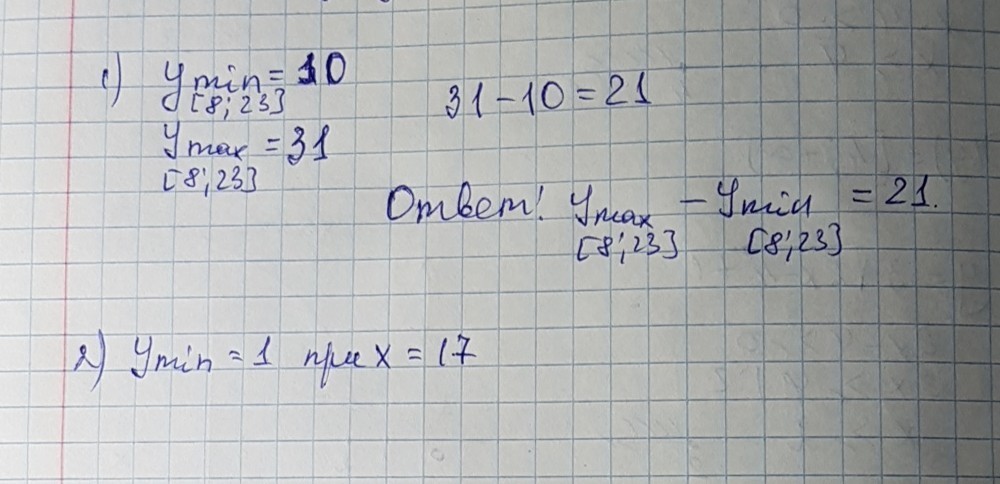 1) y min = 10
[8; 23]
31 - 10 = 21
y max = 31
[8; 23]
Ответ: y max - y min = 21.
[8; 23] [8; 23]
2) y min = 1 при x = 17